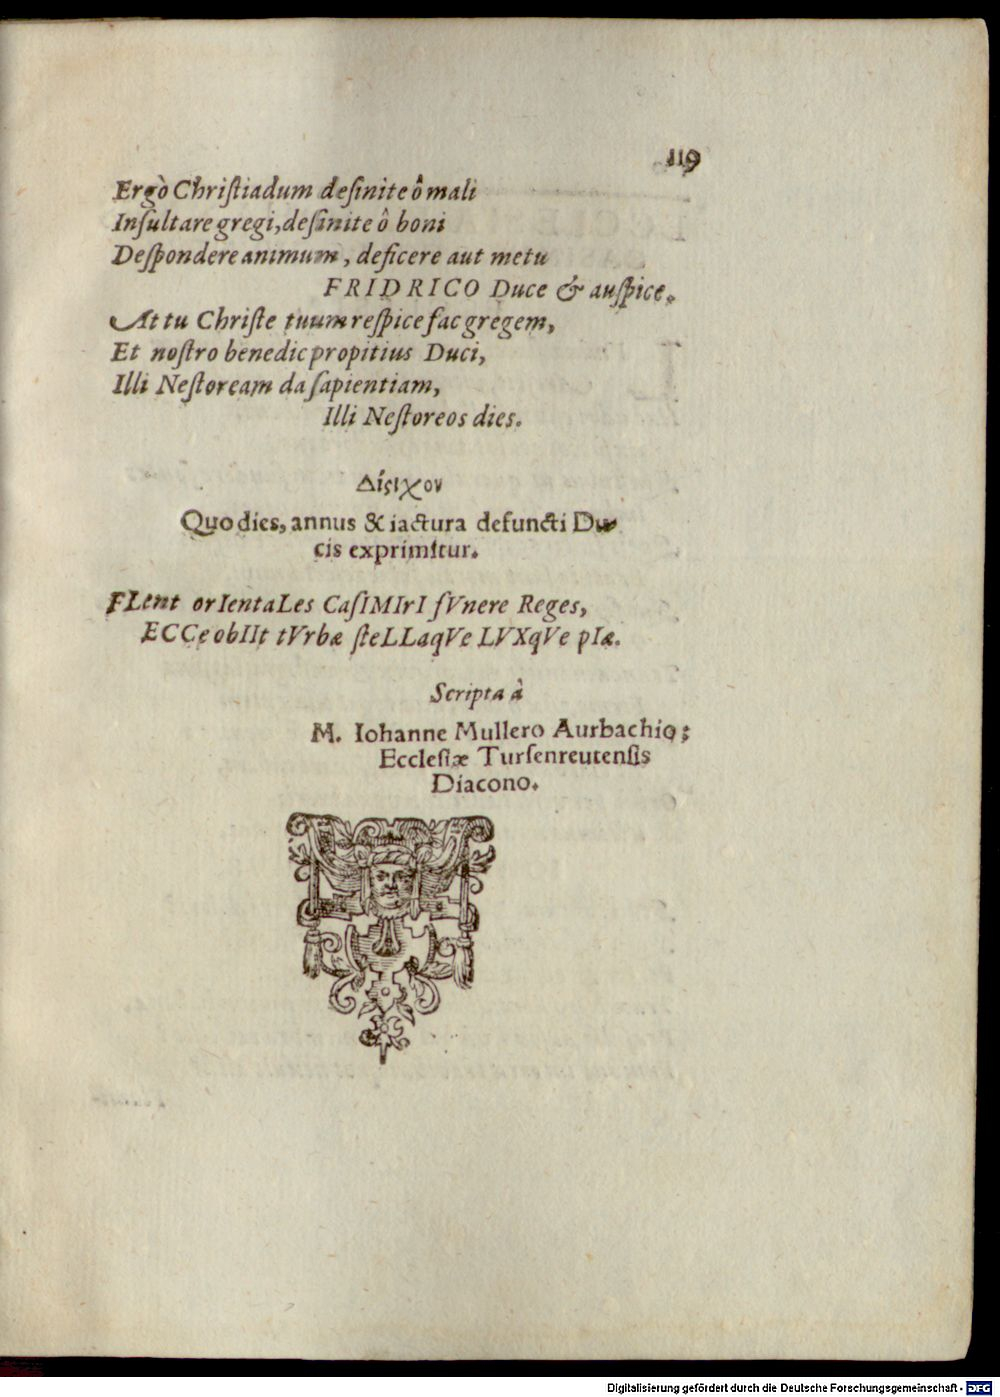 119
Ergò Chriſtiadum deſinite ô mali
Inſultare gregi, deſinite ô boni
Deſpondere animum, deficere aut metu
FRIDRICO Duce & auſpice.
At tu Chriſte tuum reſpice fac gregem,
Et noſtro benedic propitius Duci,
Illi Neſtoream da ſapientiam,
Illi Neſtoreos dies.
Δίςιχον
Quo dies, annus & iactura defuncti Du-
cis exprimitur.
FLent orIentaLes CaſIMIrI ſVnere Reges,
ECCe obIIt tVrbæ ſteLLaqVe LVXqVe pIæ.
Scripta à
M. Iohanne Mullero Aurbachio;
Eccleſiæ Turſenreutenſis
Diacono.
Digitalisierung gefördert durch die Deutsche Forschungsgemeinschaft - DFG